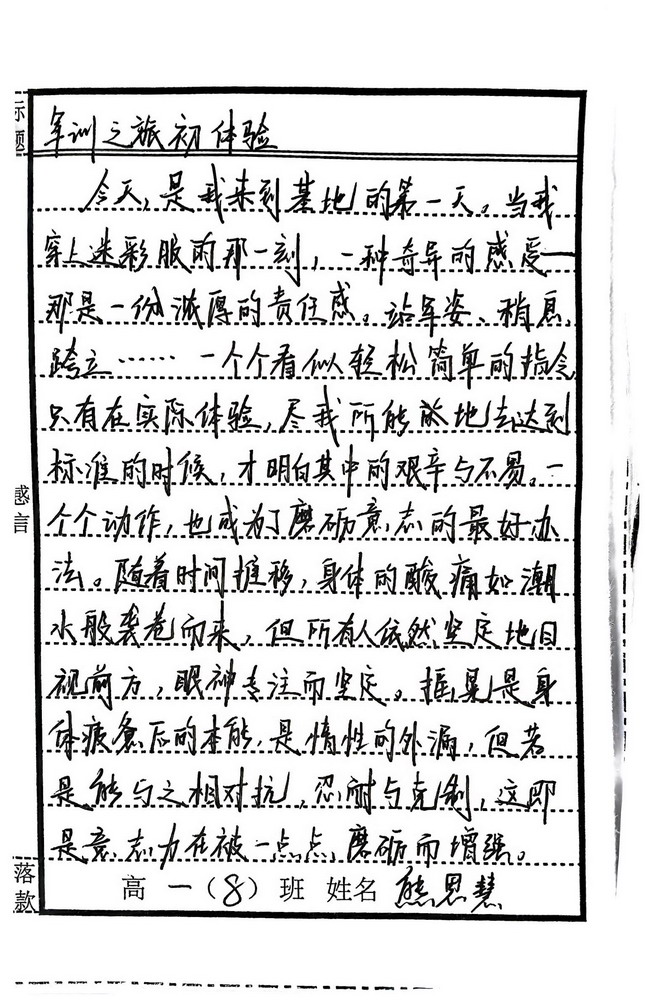 标题
军训之旅初体验
今天，是我来到基地的第一天。当我
穿上迷彩服的那一刻，一种奇异的感受——
那是一份浓厚的责任感。站军姿、稍息、
跨立……一个个看似轻松简单的指令
只有在实际体验，尽我所能的地去达到
标准的时候，才明白其中的艰辛与不易。一
个个动作，也成为了磨砺意志的最好办
法。随着时间推移，身体的酸痛如潮
水般袭卷而来，但所有人依然坚定地目
视前方，眼神专注而坚定。摇晃是身
体疲惫后的本能，是惰性的外漏，但若
是能与之相对抗，忍耐与克制，这即
是意志力在被一点点磨砺而增强。
感言
落款
高一（8）班 姓名 熊恩慧